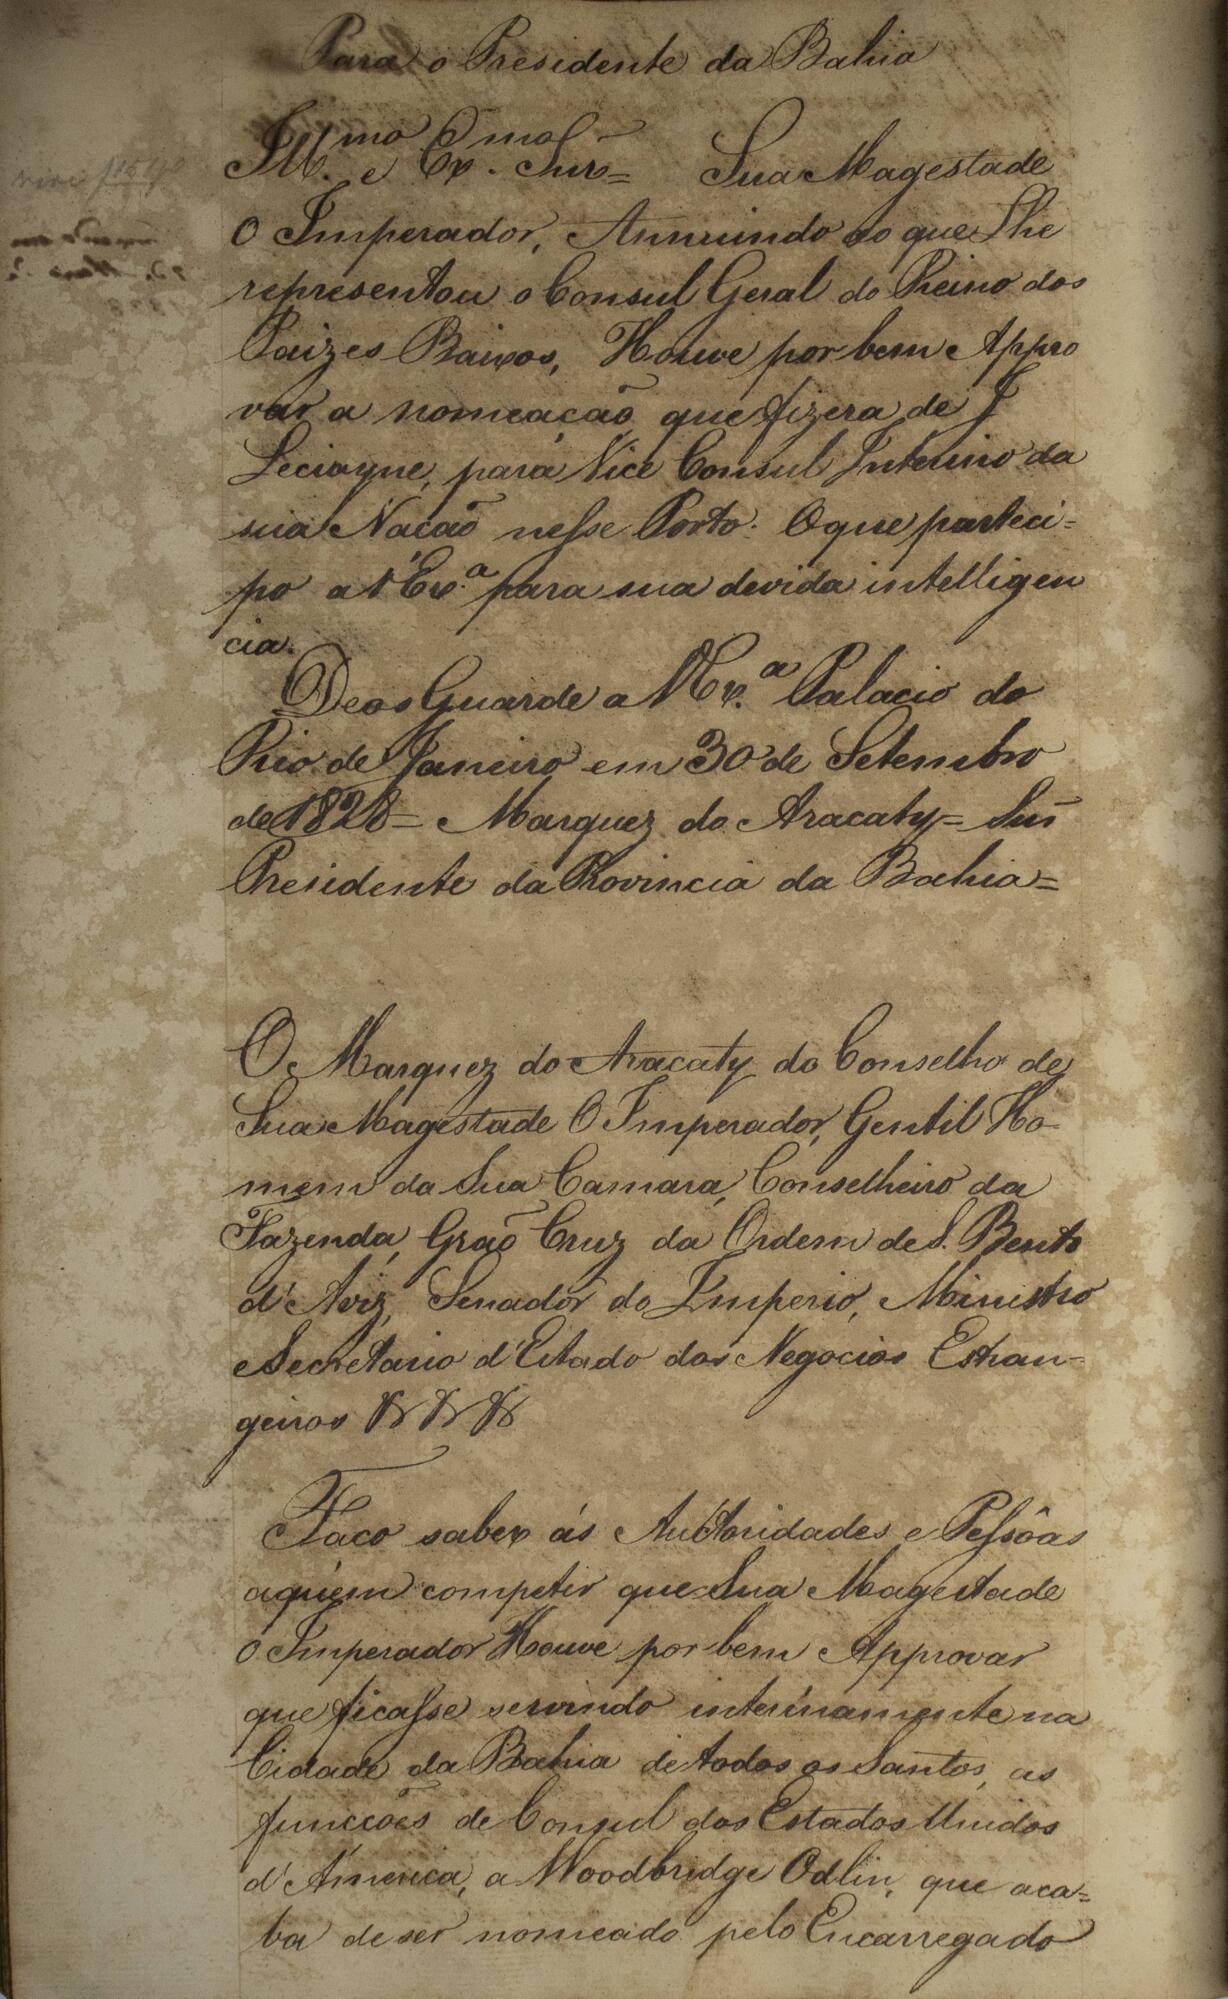 Para o Presidente da Bahia
Ill.mo e Ex.mo Snr= Sua Magestade
O Imperador, Annuindo ao que Lhe
representou o Consul Geral do Reino dos
Paizes Baixos, Houve por bem Appro
var a nomeação que fizera de J
Leciagne, para Vice Consul Interino da
sua Nação nesse Porto. O que parteci=
po a V Ex.a para sua devida intelligen
cia.
Deos Guarde a V Ex.a Palacio do
Rio de Janeiro em 30 de Setembro
de 1828= Marquez do Aracaty= Snr
Presidente da Provincia da Bahia=
O Marquez do Aracaty do Conselho de
Sua Magestade O Imperador, Gentil Ho-
mem da Sua Camara, Conselheiro da
Fazenda, Grão Cruz da Ordem de S. Bento
d'Aviz, Senador do Imperio, Ministro
e Secretario d'Estado dos Negocios Estran-
geiros & & &
Faço saber ás Auctoridades e Pessôas
aquem competir que Sua Magestade
O Imperador Houve por bem Approvar
que ficasse servindo interinamente na
Cidade da Bahia de todos os Santos, as
funcções de Consul dos Estados Unidos
d'America, a Woodbridge Odlin, que aca=
ba de ser nomeado pelo Encarregado